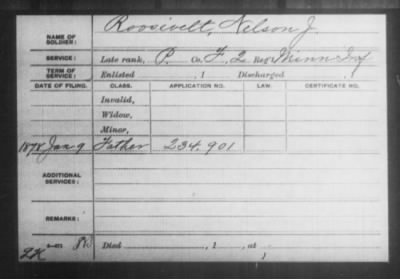 NAME OF SOLDIER: Roosivelt, Nelson J.
SERVICE: Late rank, P. Co. F, 2 Reg't Minn Inf
TERM OF SERVICE: Enlisted , 1 Discharged , 1
DATE OF FILING. CLASS. APPLICATION NO. LAW. CERTIFICATE NO.
Invalid,
Widow,
Minor,
1878 Jan 9 Father 234.901
ADDITIONAL SERVICES:
REMARKS:
Died , 1 , at